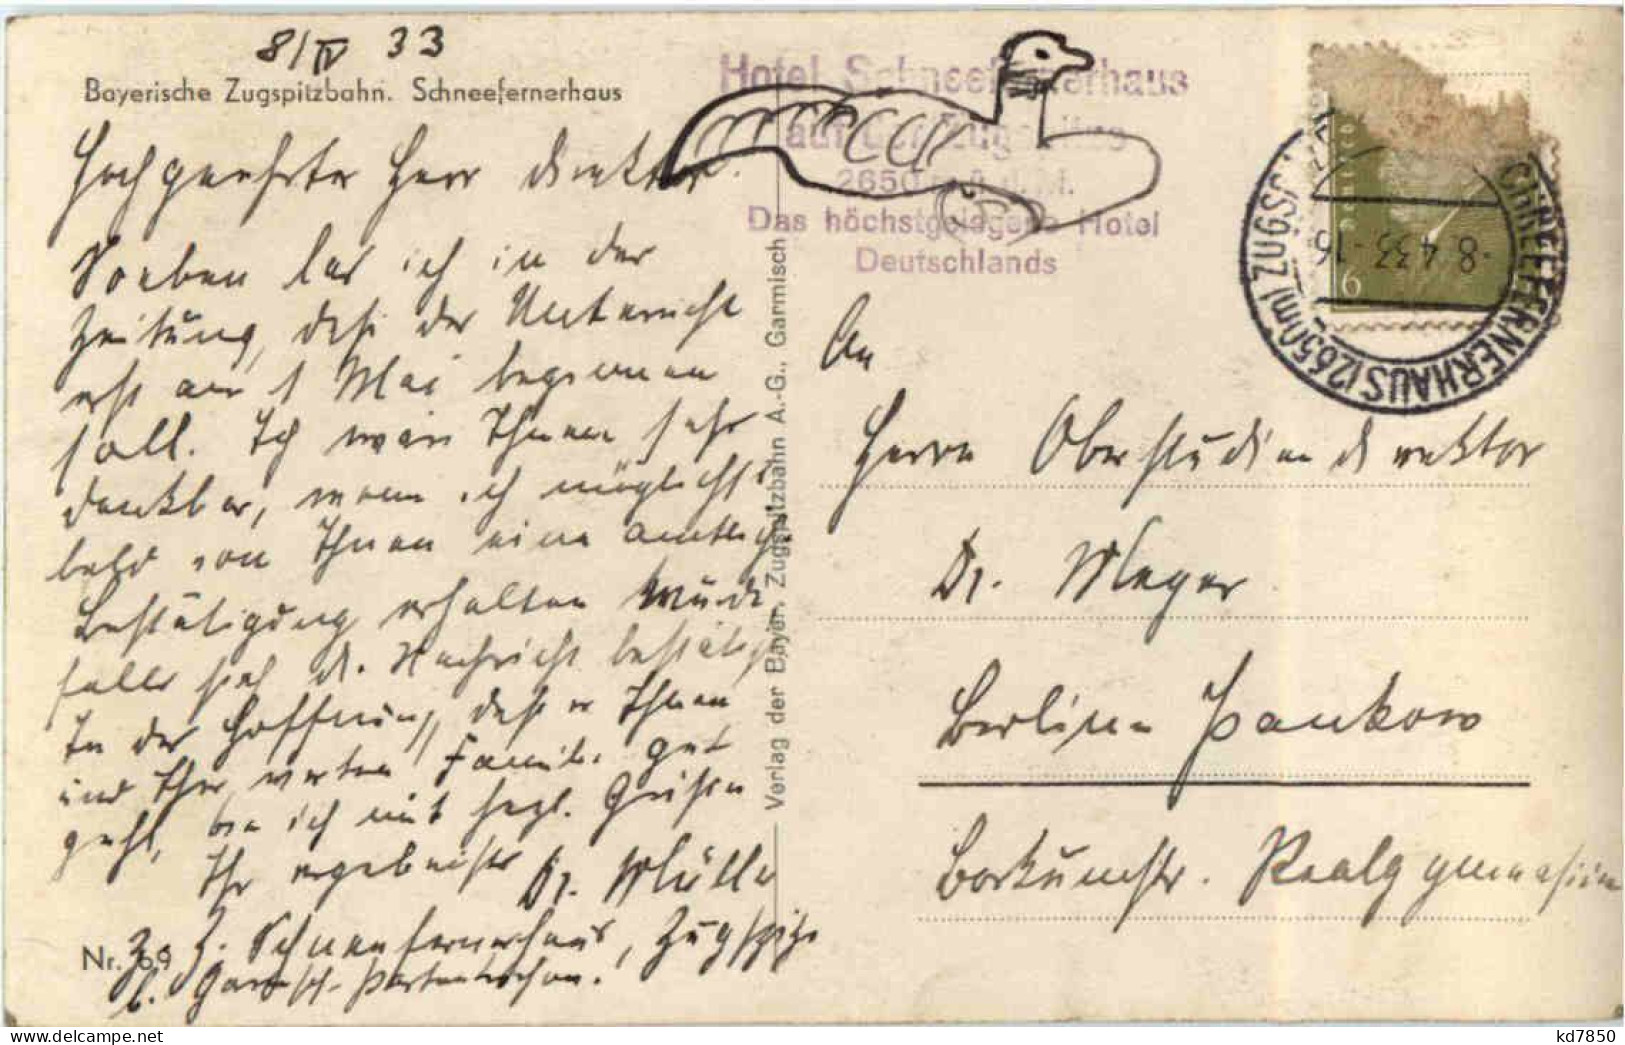 8/IV 33
Bayerische Zugspitzbahn. Schneefernerhaus
Hochgeehrter Herr Direktor.
Soeben las ich in der
Zeitung, daß der Unterricht
erst am 1 Mai beginnen
soll. Ich wäre Ihnen sehr
dankbar, wenn ich möglichst
bald von Ihnen eine amtliche
Bestätigung erhalten würde
falls sich d. Nachricht bestätigt.
In der Hoffnung, daß es Ihnen
und Ihrer werten Familie gut
geht, bin ich mit herzl. Grüßen
Ihr ergebenster Dr. Müller
z. Z. Schneefernerhaus, Zugspitze
b. Garmisch-Partenkirchen.
Nr. 69
Verlag der Bayer. Zugspitzbahn A.-G., Garmisch
Hotel Schneefernerhaus
auf der Zugspitze
2650 m ü. d. M.
Das höchstgelegene Hotel
Deutschlands
SCHNEEFERNERHAUS (2650m) ZUGSPITZE
-8.4.33.-16
6
An
Herrn Oberstudiendirektor
Dr. Meyer
Berlin-Pankow
Borkumstr. Realgymnasium
kd7850